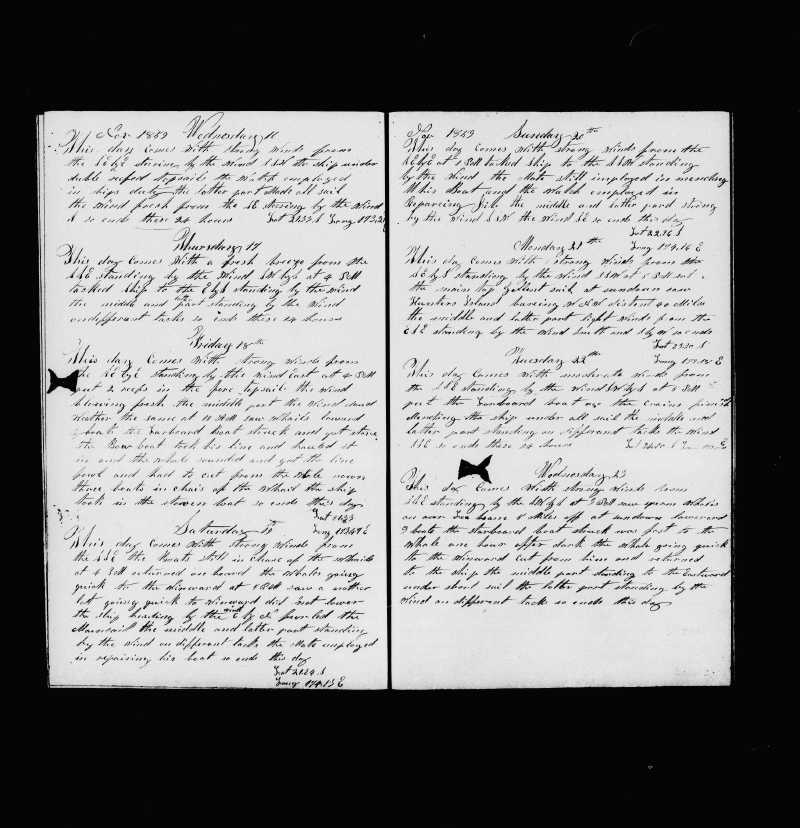 Nov 1859 Wednesday 16
This day comes with strong winds from
the SEbE steering by the wind SSW the ship under
duble reefed topsails the watch employed
in ships duty the latter part Made all sail
the wind fresh from the SE steering by the wind
S so ends these 24 hours
Thursday 17
This day comes with a fresh breeze from the
SSE standing by the wind SWbyS at 4 PM
tacked ship to the EbyS standing by the wind
the middle and latter part standing by the wind
on different tacks so ends these 24 hours
Friday 18th
This day Comes with strong winds from
the SEbyE standing by the wind East at 4 PM
put 2 reefs in the fore topsail the wind
blowing fresh the middle part the wind and
weather the same at 10 AM saw whails lowered
boats the Larboard boat struck and got stove
the Bow boat took his line and hauled it
in and the whale sounded and got the line
foul and had to cut from the whale
three boats in chais of the whail the ship
took in the stoven boat so ends this day
Saturday 19
This day comes with strong winds from
the SSE the boats still in chace of the whails
at 4 PM returned on board the whales going
quick to the winward at 5 PM saw a nother
lot going quick to winward did not lower
the ship heading by the wind E by N furled the
Mainsail the middle and latter part standing
by the wind on different tacks the Mate employed
in repairing his boat so ends this day
Lat 21.24 S
Long 174.13 E
Nov 1859 Sunday 20th
This day comes with strong winds from the
SEbyE at PM tacked ship to the SSW standing
by the wind the Mate still imployed in mending
his boat and the Watch employed in
Reparcing Jib the middle and latter pard strong
by the wind SSW the wind SE so ends this day
Lat 22.16 S
Monday 21th Long 174.16 E
This day comes with strong winds from the
SEbyS standing by the wind SSW at 5 PM set
the main top Gallent sail at sundown saw
Hunters Island bareing WNW distent 40 Miles
the middle and latter part light winds from the
ESE standing by the wind South and SbyW so ends
Tuesday 22th
This day comes with moderate winds from
the SSE standing by the wind SWbyS at PM
put the Larboard boat on the Crains finish
Mending the ship under all sail the middle and
latter part standing on different tacks the wind
SSE so ends these 24 hours
Wednesday 23
This day comes with strong winds from
SSE standing by the SWbyS at 3 PM saw sperm whails
on our Lee beam 5 Miles off at sundown lowered
3 boats the starboard boat struck was fast to the
whale one hour after dark the whale going quick
to the winward cut from him and returned
to the ship the middle part standing to the Eastward
under short sail the latter part standing by the
wind on different tack so ends this day